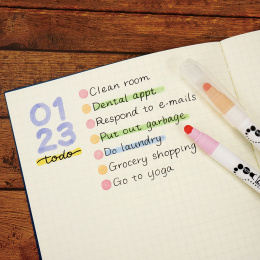 01
23
todo
Clean room
Dental appt
Respond to e-mails
Put out garbage
Do laundry
Grocery shopping
Go to yoga